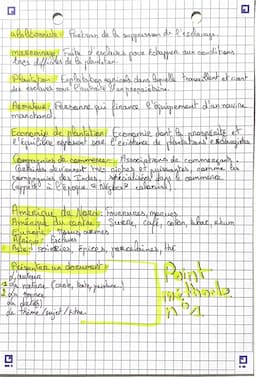 abolitionniste : Partisan de la suppression de l'esclavage.
marronnage : Fuite d'esclaves pour échapper aux conditions
très difficiles de la plantation.
Plantation : Exploitation agricole dans laquelle travaillent et vivent
des esclaves sous l'autorité d'un propriétaire.
Armateur : Personne qui finance l'équipement d'un navire
marchand.
Economie de plantation : Economie dont la prospérité et
l'équilibre reposent sur l'existence de plantations esclavagistes
Compagnies de commerce : Associations de commerçants.
Certaines deviennent très riches et puissantes, comme les
compagnies des Indes, spécialisées dans le commerce
(appelé à l'époque "Négoce" colonial)
Amérique du Nord : fourrures,
Amérique du centre : Sucre, café, coton, tabac, rhum
Europe : Tissus, armes
Afrique : Esclaves
Asie : soieries, épices, porcelaines, thé
Présenter un document :
L'auteur
La nature (carte, texte, peinture...)
La source
La date
Le thème/sujet/titre.
Point
méthode
n°1